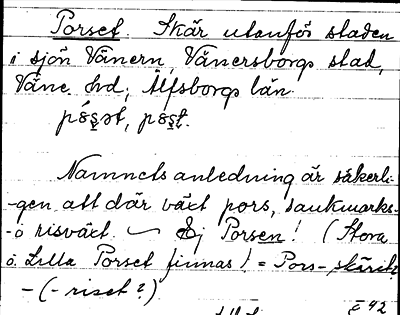 Porset. Skär utanför staden
i sjön Vänern, Vänersborgs stad,
Väne hd, Älfsborgs län.
Namnets anledning är säkerli-
-gen att där växt pors, saukmarks-
-o risväxt. — Ej Porsen! (Stora
o. Lilla Porset finnas! = Pors-skäret
-(-riset?)
E 42